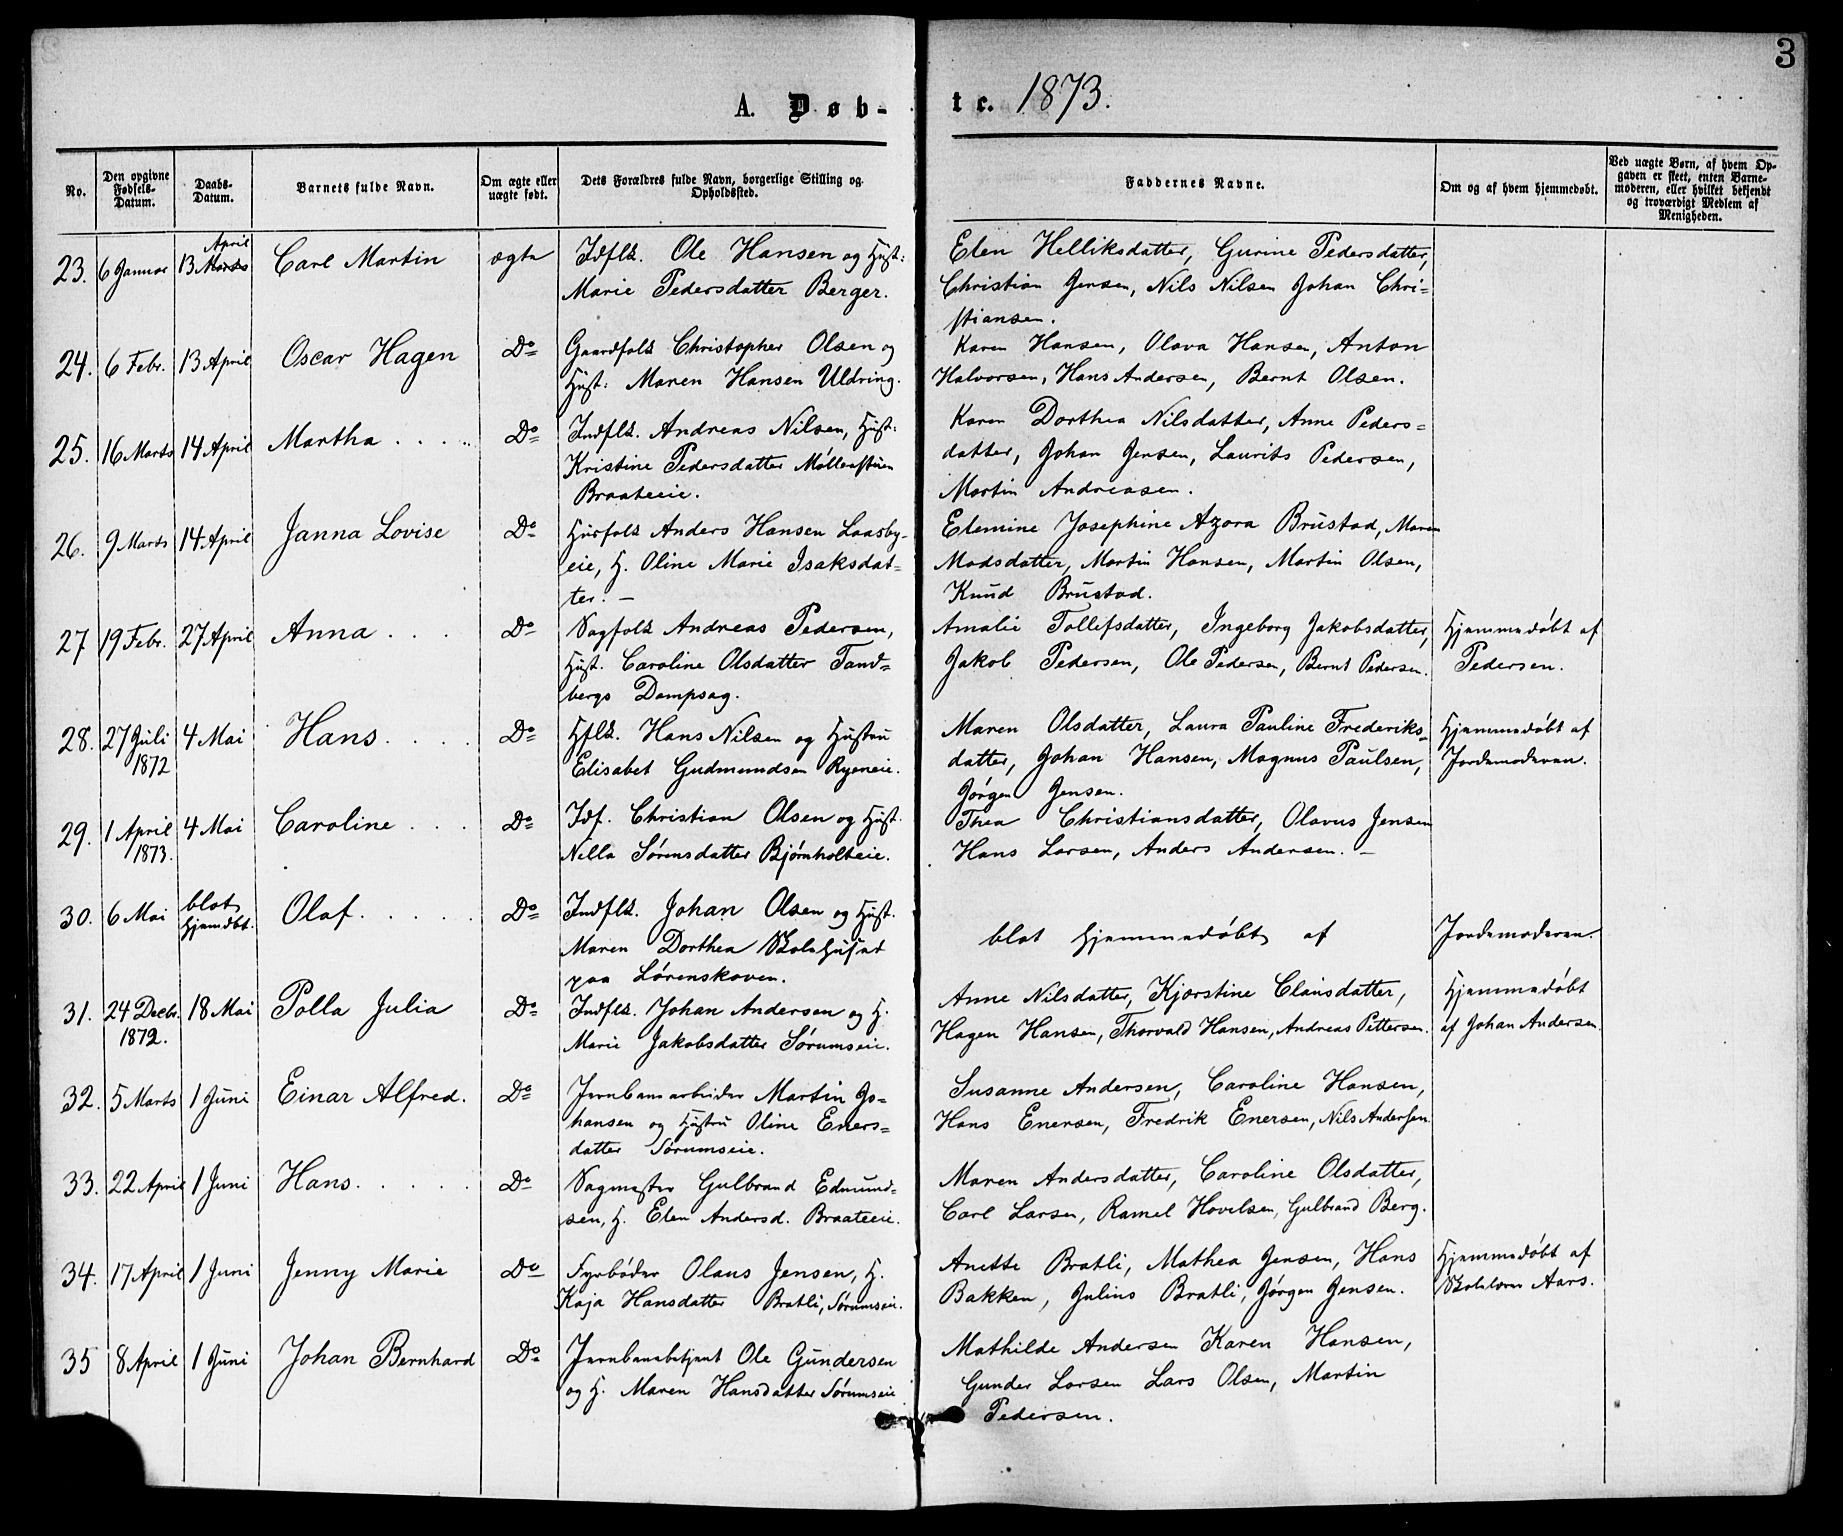 3
A. Døb-te. 1873.
No. | Den opgivne Fødsels-Datum. | Daabs-Datum. | Barnets fulde Navn. | Om ægte eller uægte født. | Dets Forældres fulde Navn, borgerlige Stilling og Opholdssted. | Faddernes Navne. | Om og af hvem hjemmedøbt. | Ved uægte Børn, af hvem Opgaven er skeet, enten Barnemoderen, eller hvilket bekjendt og troværdigt Medlem af Menigheden.
April
23. 6 Januar 13 Marts Carl Martin ægte Idflk. Ole Hansen og Hust: Elen Helliksdatter, Gurine Pedersdatter,
Marie Pedersdatter Berger. Christian Jensen, Nils Nilsen Johan Chri-
stiansen.
24. 6 Febr. 13 April Oscar Hagen Do Gaardfolk Christopher Olsen og Karen Hansen, Olava Hansen, Anton
Hust: Maren Hansen Uldring. Halvorsen, Hans Andersen, Bernt Olsen.
25. 16 Marts 14 April Martha . . . . Do Indflk. Andreas Nilsen, Hust: Karen Dorthea Nilsdatter, Anne Peders-
Kristine Pedersdatter Møllerstuen datter, Johan Jensen, Laurits Pedersen,
Braateeie. Martin Andreasen.
26. 9 Marts 14 April Janna Lovise Do Husfolk Anders Hansen Laasby- Elemine Josephine Azora Brustad, Maren
eie, H. Oline Marie Isaksdat- Madsdatter, Martin Hansen, Martin Olsen,
ter. - Knud Brustad.
27 19 Febr. 27 April Anna . . . Do Sagfolk Andreas Pedersen, Amalie Tollefsdatter, Ingeborg Jakobsdatter, Hjemmedøbt af
Hust. Caroline Olsdatter Tand- Jakob Pedersen, Ole Pedersen, Bernt Pedersen. Pedersen.
bergs Dampsag.
28. 27 Juli 4 Mai Hans . . . . Do Hflk. Hans Nilsen og Hustru Maren Olsdatter, Laura Pauline Frederiks- Hjemmedøbt af
1872 Elisabet Gudmundsen Ryeneie. datter, Johan Hansen, Magnus Paulsen, Jordemoderen.
Jørgen Jensen.
29. 1 April 4 Mai Caroline . . . Do Idf. Christian Olsen og Hust. Thea Christiansdatter, Olavus Jensen
1873. Nella Sørensdatter Bjørnholteie. Hans Larsen, Anders Andersen. -
30. 6 Mai blot Hjemdøbt. Olaf. . . . . Do Indflk. Johan Olsen og Hust. blot hjemmedøbt af Jordemoderen.
Maren Dorthea Skolehuset
paa Lørenskoven.
31. 24 Decbr. 18 Mai Polla Julia Do Indflk. Johan Andersen og H. Anne Nilsdatter, Kjærstine Clausdatter, Hjemmedøbt
1872. Marie Jakobsdatter Sørumseie. Hagen Hansen, Thorvald Hansen, Andreas Pettersen. af Johan Andersen.
32. 5 Marts 1 Juni Einar Alfred. Do Jernbanearbeider Martin Jo- Susanne Andersen, Caroline Hansen,
hansen og Hustru Oline Eners- Hans Enersen, Fredrik Enersen, Nils Andersen.
datter Sørumseie.
33. 22 April 1 Juni Hans. . . . . Do Sagmester Gulbrand Edmund- Maren Andersdatter, Caroline Olsdatter,
sen, H. Elen Andersd. Braateeie. Carl Larsen, Ramel Hovelsen, Gulbrand Berg.
34. 17 April 1 Juni Jenny Marie Do Fyrbøder Olaus Jensen, H. Anette Bratli, Mathea Jensen, Hans Hjemmedøbt af
Kaja Hansdatter Bratli, Sørumseie. Bakken, Julius Bratli, Jørgen Jensen. Skolelærer Aars.
35 8 April 1 Juni Johan Bernhard Do Jernbanebetjent Ole Gundersen Mathilde Andersen Karen Hansen,
og H. Maren Hansdatter Sørumseie Gunder Larsen Lars Olsen, Martin
Pedersen.